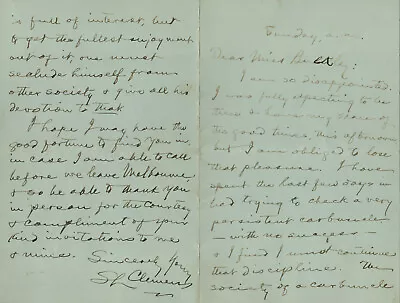 Sunday, a.m.
Dear Miss
I am so disappointed.
I was fully expecting to be
there & have my share of
the good times, this afternoon,
but I am obliged to lose
that pleasure. I have
spent the last few days in
bed trying to check a very
persistent carbuncle
— with no success —
& find I must continue
that discipline. The
society of a carbuncle
is full of interest, but
to get the fullest enjoyment
out of it, one must
seclude himself from
other society & give all his
devotion to that.
I hope I may have the
good fortune to find you in,
in case I am able to call
before we leave Melbourne,
& so be able to thank you
in person for the courtesy
& compliment of your
kind invitations to me
& mine.
Sincerely Yours
SL Clemens